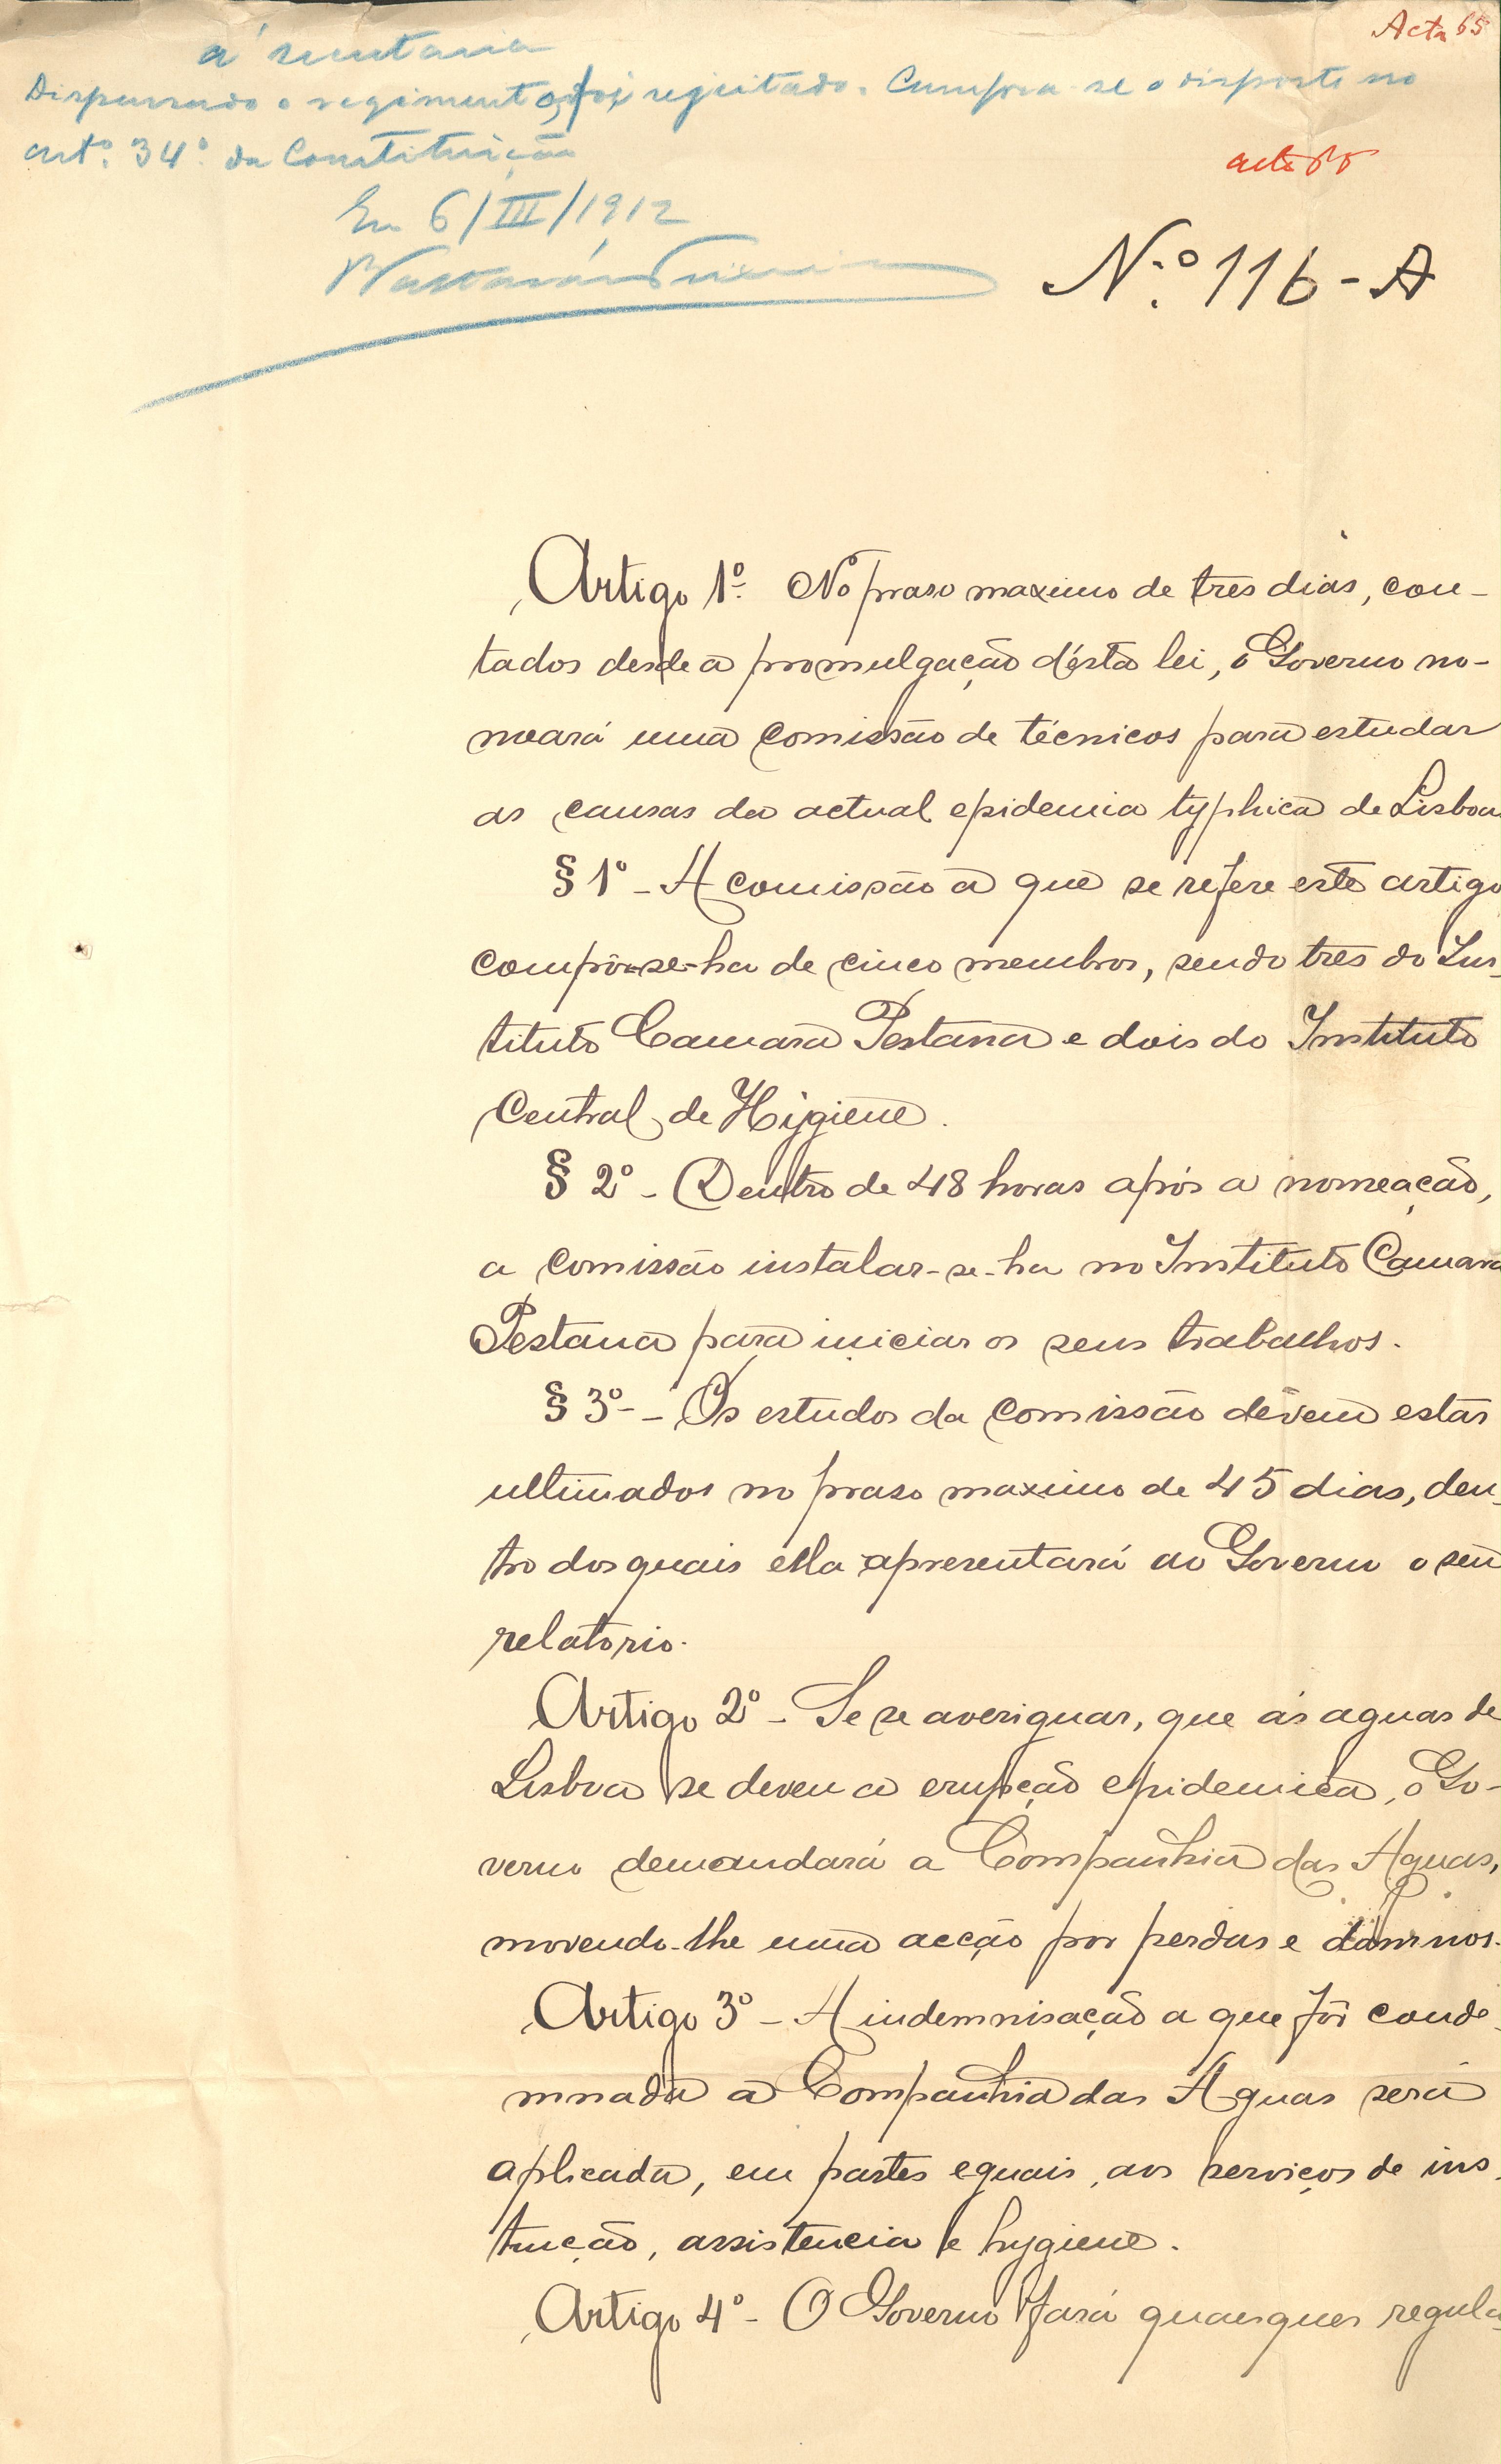 Acta 65
á secretaria
Dispensado o regimento, foi regeitado. Cumpra-se o disposto no
artº. 34º. da Constituição
acta 65
Em 6/III/1912
N.º 116-A
Artigo 1º. No praso maximo de tres dias, con-
tados desde a promulgação d'ésta lei, o Governo no-
meará uma comissão de técnicos para estudar
as causas da actual epidemia typhica de Lisboa.
§ 1º - A comissão a que se refere este artigo
compôr-se-ha de cinco membros, sendo tres do Ins-
tituto Camara Pestana e dois do Instituto
Central de Higiene.
§ 2º - Dentro de 48 horas após a nomeação,
a comissão instalar-se-ha no Instituto Camara
Pestana para iniciar os seus trabalhos.
§ 3º - Os estudos da comissão dévem estar
ultimados no praso maximo de 45 dias, den-
tro dos quais ella apresentará ao Governo o seu
relatorio.
Artigo 2º - Se se averiguar, que ás aguas de
Lisboa se deveu a erupção epidemica, o Go-
verno demandará a Companhia das Aguas,
movendo-lhe uma acção por perdas e damnos.
Artigo 3º - A indemnisação a que fôr conde-
mnada a Companhia das Aguas será
aplicada, em partes eguais, aos serviços de ins-
trucção, assistencia e hygiene.
Artigo 4º - O Governo fará quaesquer regula-